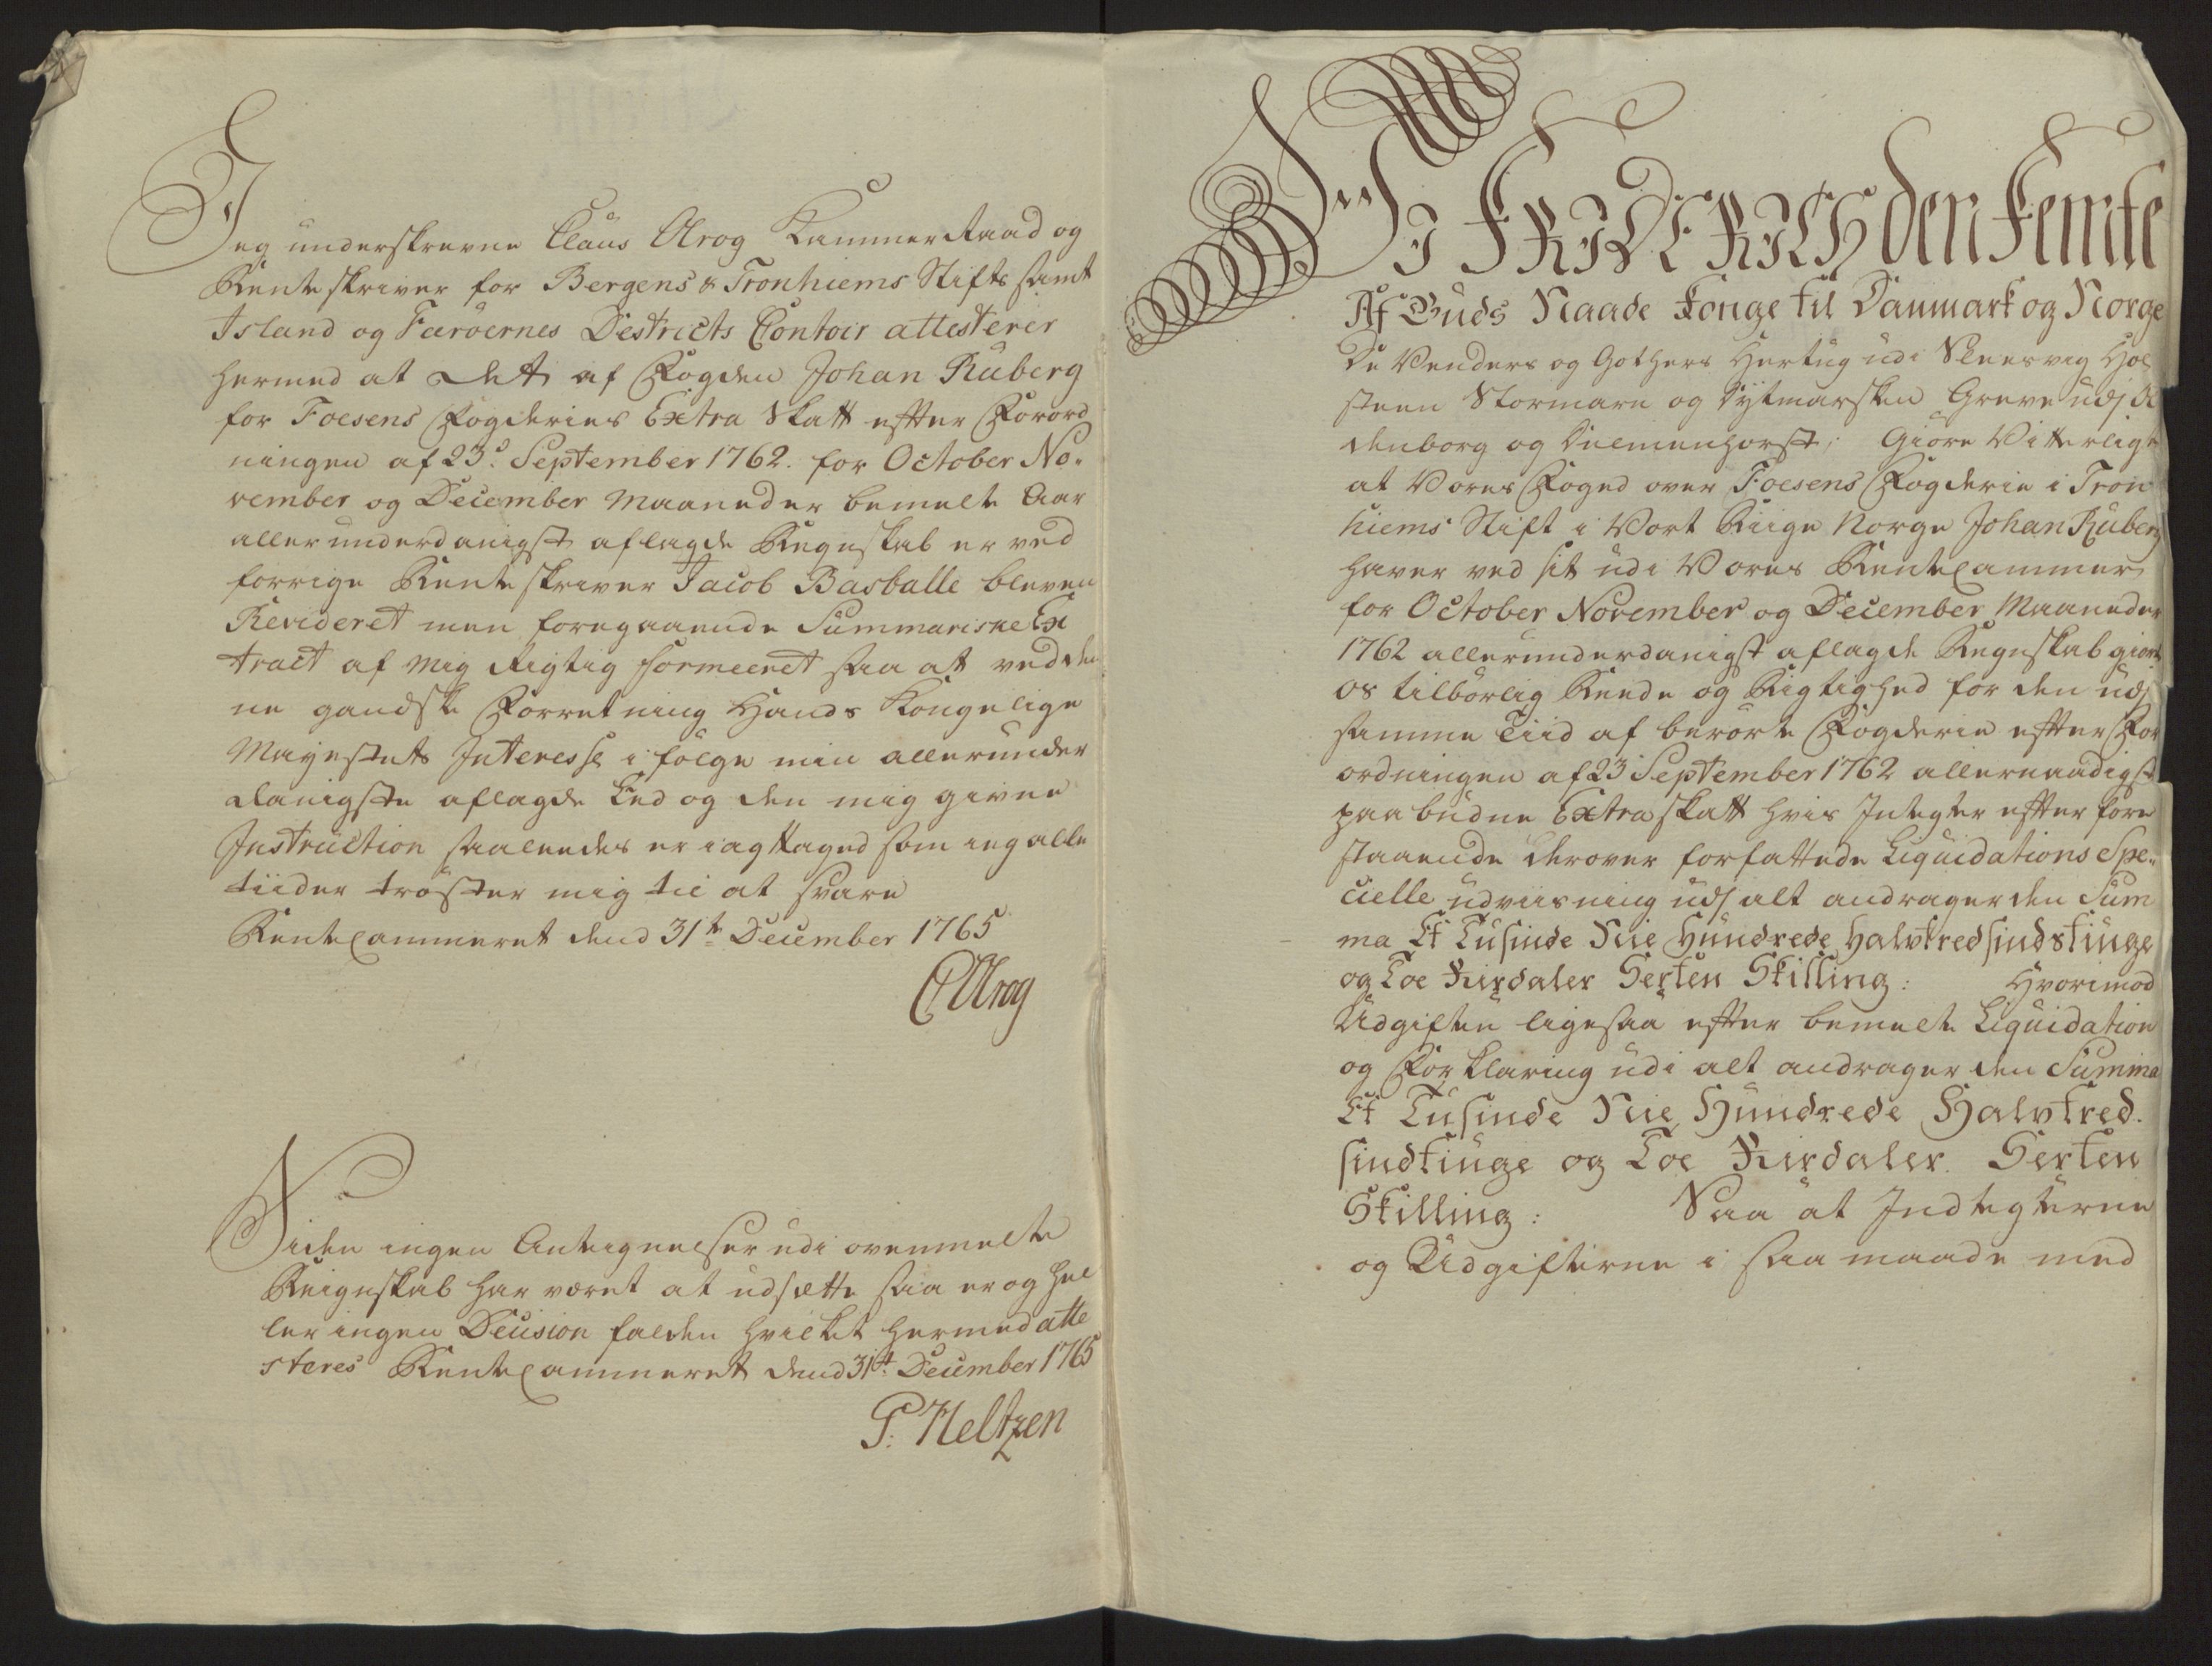 Jeg underskrevne Claus Olrog Kammer Raad og
Renteskriver for Bergens & Tronhiems Stifts samt
Island og Færöernes Destricts Contoir attesterer
hermed at det af Fogden Johan Ruberg
for Foesens Fogderies Extra Skatt efter Forord
ningen af 23de September 1762. for October No-
vember og December Maaneder bemelte Aar
allerunderdanigst aflagde Regnskab er ved
forrige Renteskriver Jacob Basballe bleven
Revideret men foregaaende Summariske Ex
tract af mig Rigtig formeeret saa at ved den
ne gandske Forretning Hands Kongelige
Mayestets Interesse i fölge min allerunder
danigste aflagde Eed og den mig givne
Instruction saaledes er iagttaged som ieg alle
tiider tröster mig til at svare
RenteCammeret dend 31te December 1765
C Olrog
Siden ingen Antegnelser udi ovenmelte
Reignskab har været at udsætte saa er og hel
ler ingen Decision falden hvilket hermed atte
steres RenteCammeret dend 31te December 1765
P: Neltzen
Wi FRIDERICH den Femte
Af Guds Naade Konge til Danmark og Norge
De Venders og Gothers Hertug udi Slesvig Hol
steen Stormarn og Dytmarsken Greve udj Ol
denborg og Delmenhorst; Giöre Vitterligt
at Vores Foged over Foesens Fogderie i Tron
hiems Stift i Vort Riige Norge Johan Ruberg
haver ved sit udi Vores RenteCammer
for October November og December Maaneder
1762 allerunderdanigst aflagde Regnskab giort
os tilbörlig Reede og Rigtighed for den udj
samme Tiid af berörte Fogderie efter For
ordningen af 23 September 1762 allernaadigst
paabudne Extra skatt hvis Integter efter fore
staaende derover forfattede Liquidations Spe-
cielle udviisning udj alt andrager den Sum
ma Et Tusinde Nie Hundrede Halvtredsindstiuge
og Toe Rixdaler Sexten Skilling: Hvorimod
Udgiften ligesaa efter bemelte Liquidation
og Forklaring udi alt andrager den Summa
Et Tusinde Nie Hundrede Halvtred-
sindtiuge og Toe Rixdaler Sexten
Skilling: Saa at Indtegterne
og Udgifterne i saa maade med